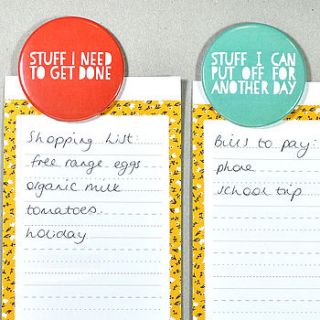 STUFF I NEED
TO GET DONE
Shopping List:
free range eggs
organic milk
tomatoes
holiday
STUFF I CAN
PUT OFF FOR
ANOTHER DAY
Bills to pay:
phone
school trip